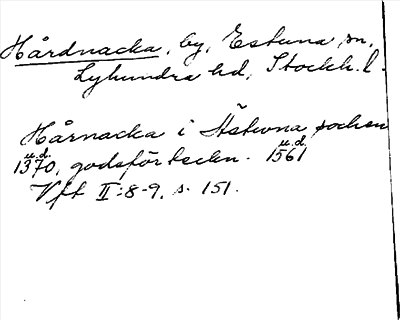 Hårdnacka, by, Estuna sn,
Lyhundra hd, Stockh. l.
Hårnacka i Ästuna socken
u.d. u.d.
1370, godsförteckn. 1561
Vft II:8-9, s. 151.